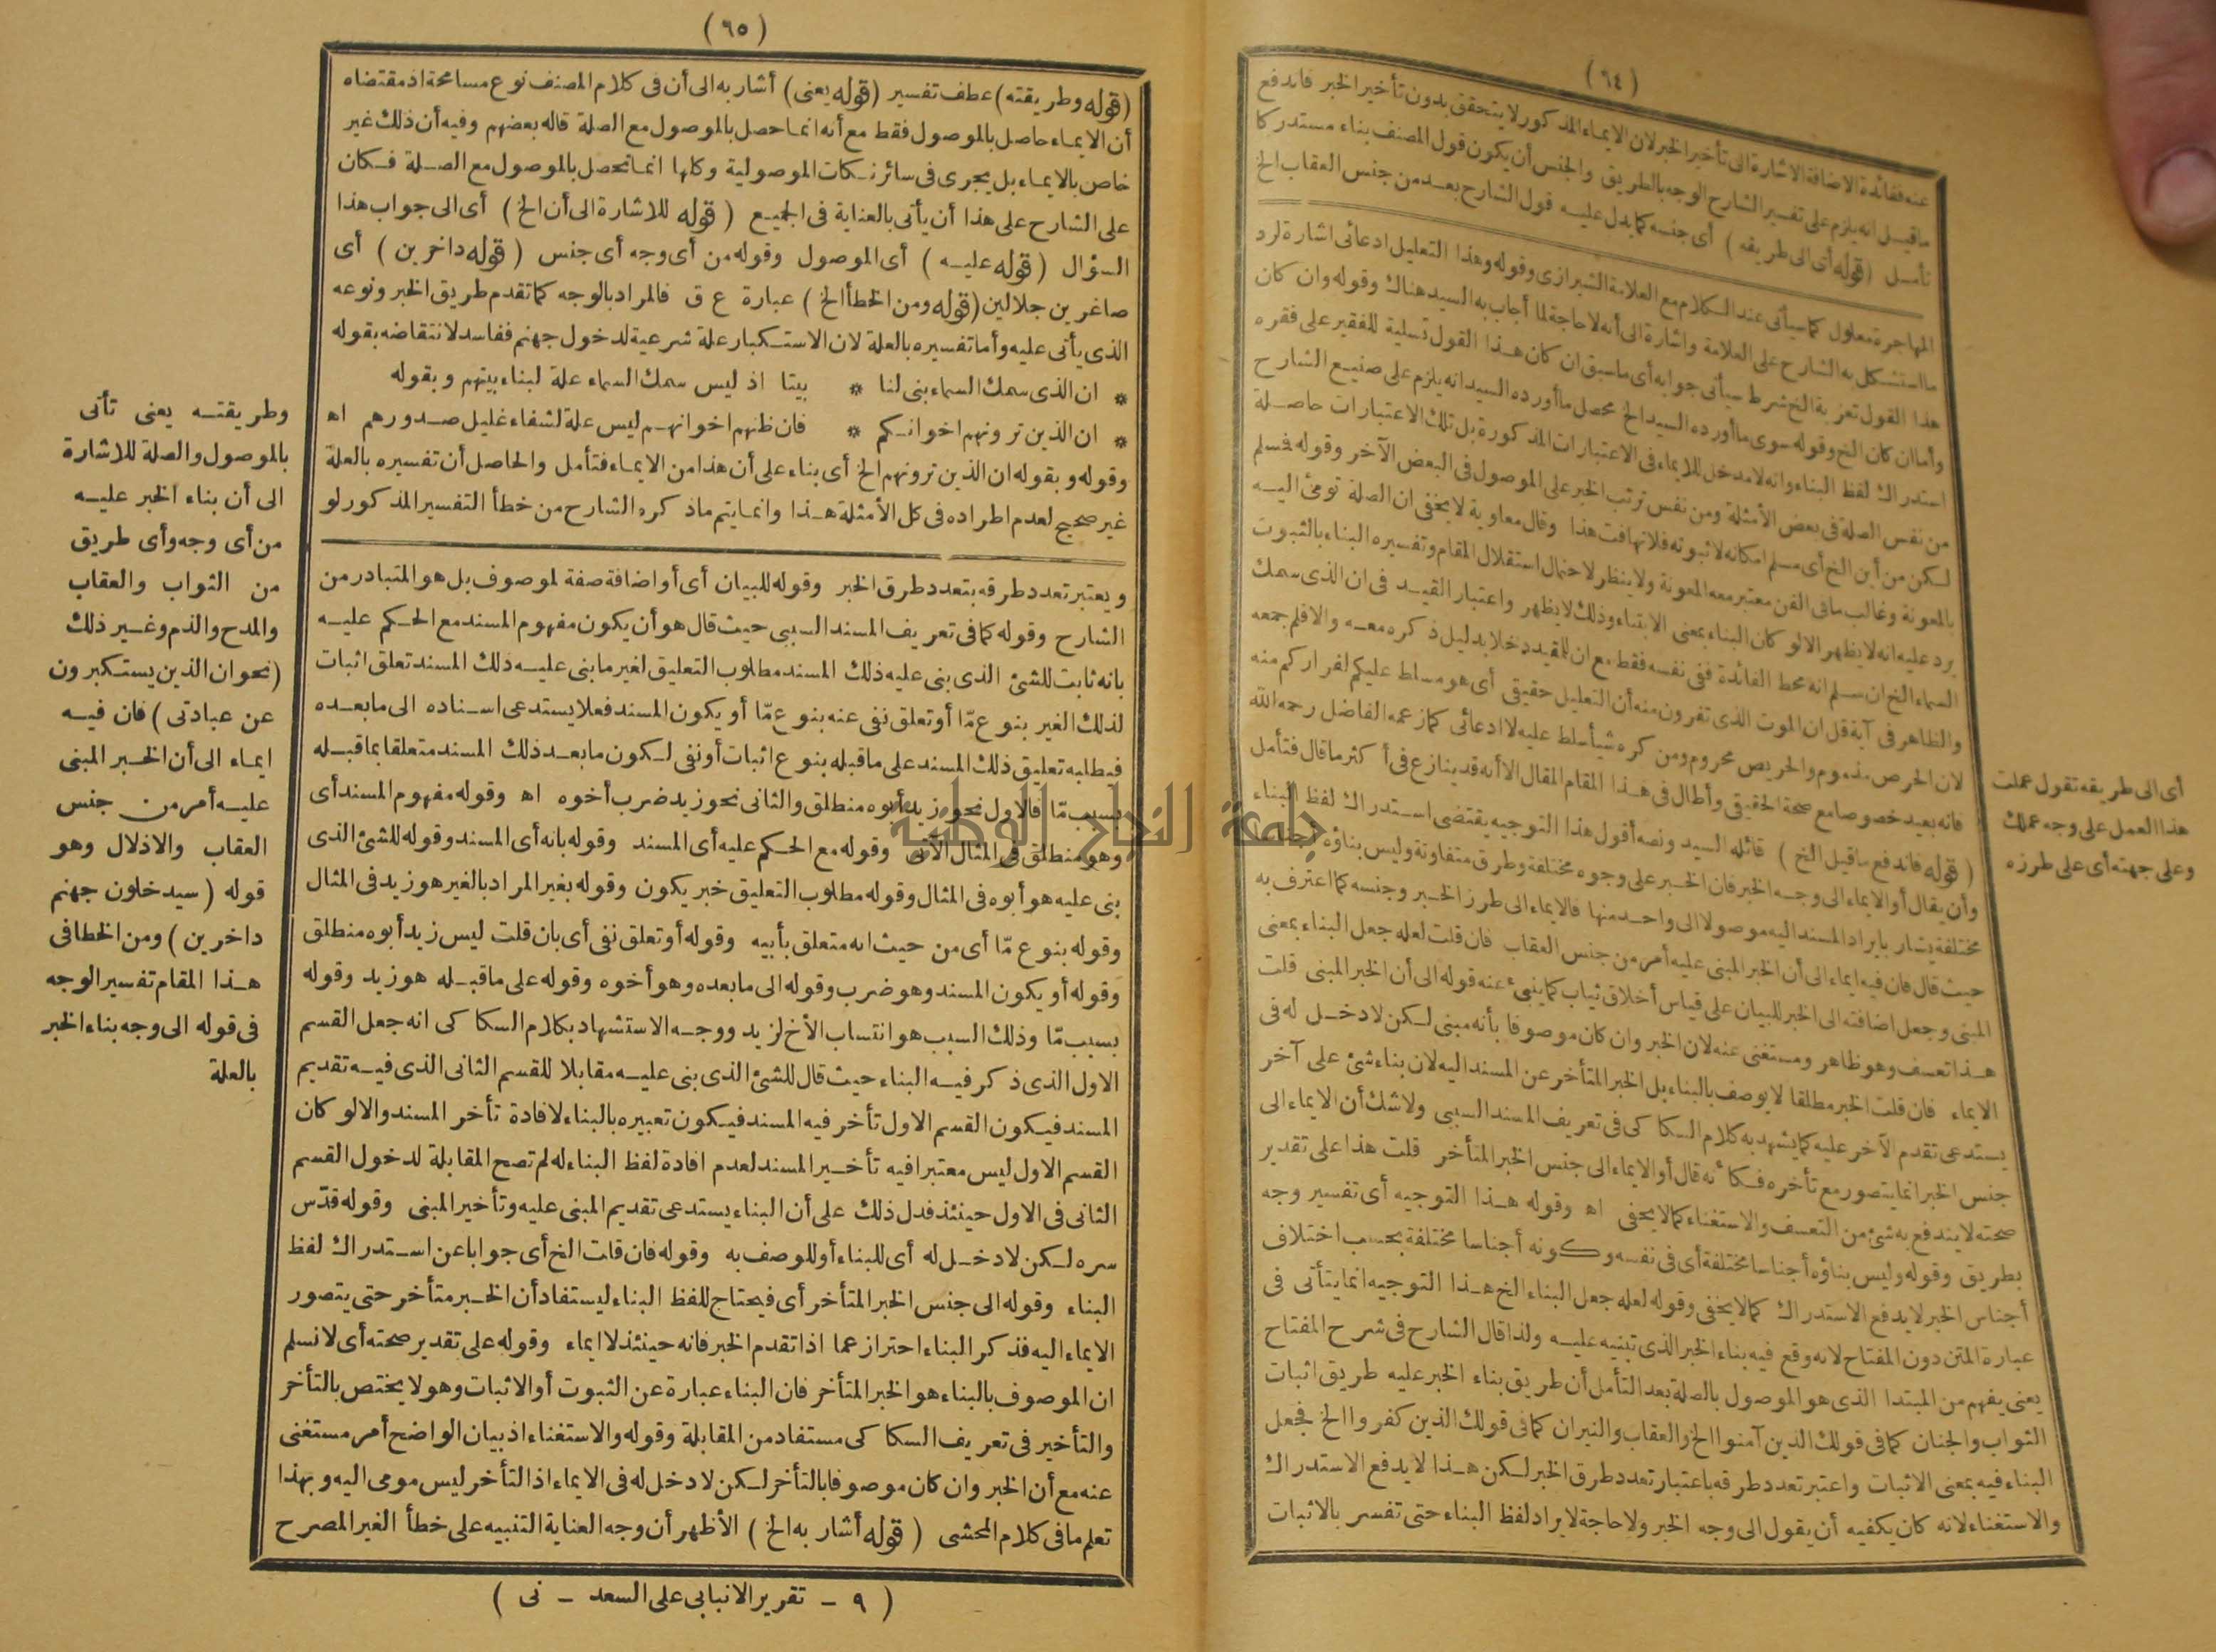 (٦٤)
عنه ففائدة الاضافة الاشارة الى تأخير الخبر لان الايماء المذكور لا يتحقق بدون تأخير الخبر فاندفع
ما قيل انه يلزم على تفسير الشارح الوجه بالطريق والجنس أن يكون قول المصنف بناء مستدركا
تأمل (قوله أى الى طريقه) أى جنسه كما يدل عليه قول الشارح بعد من جنس العقاب الخ
المهاجرة معلول كما سيأتى عند الكلام مع العلامة الشيرازى وقوله وهذا التعليل ادعائى اشارة لرد
ما استشكل به الشارح على العلامة واشارة الى أنه لا حاجة لما أجاب به السيد هناك وقوله وان كان
هذا القول تعزية الخ شرط سيأتى جوابه أى ما سبق ان كان هذا القول تسلية للفقير على فقره
وأما ان كان الخ وقوله سوى ما أورده السيد الخ محصل ما أورده السيد انه يلزم على صنيع الشارح
استدراك لفظ البناء وانه لا مدخل للايماء فى الاعتبارات المذكورة بل تلك الاعتبارات حاصلة
من نفس الصلة فى بعض الأمثلة ومن نفس ترتب الخبر على الموصول فى البعض الآخر وقوله فسلم
لكن من أين الخ أى مسلم امكانه لا ثبوته فلا تهافت هذا وقال معاوية لا يخفى ان الصلة تومئ اليه
بالمعونة وغالب ما فى الفن معتبر معه المعونة ولا ينظر لاحتمال استقلال المقام وتفسيره البناء بالثبوت
يرد عليه انه لا يظهر الا لو كان البناء بمعنى الابتناء وذلك لا يظهر واعتبار القيد فى ان الذى سمك
السماء الخ ان سلم انه محط الفائدة ففى نفسه فقط مع ان للمقيد دخلا بدليل ذكره معه والا فلم جمعه
والظاهر فى آية قل ان الموت الذى تفرون منه أن التعليل حقيقى أى هو مسلط عليكم لفراركم منه
لان الحرص مذموم والحريص محروم ومن كره شيأ سلط عليه لا ادعائى كما زعمه الفاضل رحمه الله
فانه بعيد خصوصا مع صحة الحقيقى وأطال فى هذا المقام المقال الا أنه قد ينازع فى أكثر ما قال فتأمل
(قوله فاندفع ما قيل الخ) قائله السيد ونصه أقول هذا التوجيه يقتضى استدراك لفظ البناء
وأن يقال أو الايماء الى وجه الخبر فان الخبر على وجوه مختلفة وطرق متفاوتة وليس بناؤه أجناسا
مختلفة يشار بايراد المسند اليه موصولا الى واحد منها فالايماء الى طرز الخبر وجنسه كما اعترف به
حيث قال فان فيه ايماء الى أن الخبر المبنى عليه أمر من جنس العقاب فان قلت لعله جعل البناء بمعنى
المبنى وجعل اضافته الى الخبر للبيان على قياس أخلاق ثياب كما ينبىء عنه قوله الى أن الخبر المبنى قلت
هذا تعسف وهو ظاهر ومستغنى عنه لان الخبر وان كان موصوفا بأنه مبنى لكن لا دخل له فى
الايماء فان قلت الخبر مطلقا لا يوصف بالبناء بل الخبر المتأخر عن المسند اليه لان بناء شئ على آخر
يستدعى تقدم الآخر عليه كما يشهد به كلام السكاكى فى تعريف المسند السببى ولا شك أن الايماء الى
جنس الخبر انما يتصور مع تأخره فكأنه قال أو الايماء الى جنس الخبر المتأخر قلت هذا على تقدير
صحته لا يندفع به شئ من التعسف والاستغناء كما لا يخفى اه وقوله هذا التوجيه أى تفسير وجه
بطريق وقوله وليس بناؤه أجناسا مختلفة أى فى نفسه وكونه أجناسا مختلفة بحسب اختلاف
أجناس الخبر لا يدفع الاستدراك كما لا يخفى وقوله لعله جعل البناء الخ هذا التوجيه انما يتأتى فى
عبارة المتن دون المفتاح لانه وقع فيه بناء الخبر الذى تبنيه عليه ولذا قال الشارح فى شرح المفتاح
يعنى يفهم من المبتدا الذى هو الموصول بالصلة بعد التأمل أن طريق بناء الخبر عليه طريق اثبات
الثواب والجنان كما فى قولك الذين آمنوا الخ والعقاب والنيران كما فى قولك الذين كفروا الخ فجعل
البناء فيه بمعنى الاثبات واعتبر تعدد طرقه باعتبار تعدد طرق الخبر لكن هذا لا يدفع الاستدراك
والاستغناء لانه كان يكفيه أن يقول الى وجه الخبر ولا حاجة لايراد لفظ البناء حتى تفسر بالاثبات
أى الى طريقه تقول عملت
هذا العمل على وجه عملك
وعلى جهته أى على طرزه
(٦٥)
(قوله وطريقته) عطف تفسير (قوله يعنى) أشار به الى أن فى كلام المصنف نوع مسامحة اذ مقتضاه
أن الايماء حاصل بالموصول فقط مع أنه انما حصل بالموصول مع الصلة قاله بعضهم وفيه أن ذلك غير
خاص بالايماء بل يجرى فى سائر نكات الموصولية وكلها انما تحصل بالموصول مع الصلة فكان
على الشارح على هذا أن يأتى بالعناية فى الجميع (قوله للاشارة الى أن الخ) أى الى جواب هذا
السؤال (قوله عليه) أى الموصول وقوله من أى وجه أى جنس (قوله داخرين) أى
صاغرين جلالين (قوله ومن الخطأ الخ) عبارة ع ق فالمراد بالوجه كما تقدم طريق الخبر ونوعه
الذى يأتى عليه وأما تفسيره بالعلة لان الاستكبار علة شرعية لدخول جهنم ففاسد لانتقاضه بقوله
* ان الذى سمك السماء بنى لنا * بيتا اذ ليس سمك السماء علة لبناء بيتهم وبقوله
* ان الذين ترونهم اخوانكم * فان ظنهم اخوانهم ليس علة لشفاء غليل صدورهم اه
وقوله وبقوله ان الذين ترونهم الخ أى بناء على أن هذا من الايماء فتأمل والحاصل أن تفسيره بالعلة
غير صحيح لعدم اطراده فى كل الأمثلة هذا وانما يتم ما ذكره الشارح من خطأ التفسير المذكور لو
ويعتبر تعدد طرقه بتعدد طرق الخبر وقوله للبيان أى أو اضافة صفة لموصوف بل هو المتبادر من
الشارح وقوله كما فى تعريف المسند السببى حيث قال هو أن يكون مفهوم المسند مع الحكم عليه
بانه ثابت للشئ الذى بنى عليه ذلك المسند مطلوب التعليق لغير ما بنى عليه ذلك المسند تعلق اثبات
لذلك الغير بنوع مّا أو تعلق نفى عنه بنوع مّا أو يكون المسند فعلا يستدعى اسناده الى ما بعده
فيطلبه تعليق ذلك المسند على ما قبله بنوع اثبات أو نفى لكون ما بعد ذلك المسند متعلقا بما قبله
بسبب مّا فالاول نحو زيد أبوه منطلق والثانى نحو زيد ضرب أخوه اه وقوله مفهوم المسند أى
وهو منطلق فى المثال الآتى وقوله مع الحكم عليه أى المسند وقوله بانه أى المسند وقوله للشئ الذى
بنى عليه هو أبوه فى المثال وقوله مطلوب التعليق خبر يكون وقوله بغير المراد بالغير هو زيد فى المثال
وقوله بنوع مّا أى من حيث انه متعلق بأبيه وقوله أو تعلق نفى أى بان قلت ليس زيد أبوه منطلق
وقوله أو يكون المسند وهو ضرب وقوله الى ما بعده وهو أخوه وقوله على ما قبله هو زيد وقوله
بسبب مّا وذلك السبب هو انتساب الأخ لزيد ووجه الاستشهاد بكلام السكاكى انه جعل القسم
الاول الذى ذكر فيه البناء حيث قال للشئ الذى بنى عليه مقابلا للقسم الثانى الذى فيه تقديم
المسند فيكون القسم الاول تأخر فيه المسند فيكون تعبيره بالبناء لافادة تأخر المسند والا لو كان
القسم الاول ليس معتبرا فيه تأخير المسند لعدم افادة لفظ البناء له لم تصح المقابلة لدخول القسم
الثانى فى الاول حينئذ فدل ذلك على أن البناء يستدعى تقديم المبنى عليه وتأخير المبنى وقوله قدّس
سره لكن لا دخل له أى للبناء أو للوصف به وقوله فان قلت الخ أى جوابا عن استدراك لفظ
البناء وقوله الى جنس الخبر المتأخر أى فيحتاج للفظ البناء ليستفاد أن الخبر متأخر حتى يتصور
الايماء اليه فذكر البناء احتراز عما اذا تقدم الخبر فانه حينئذ لا ايماء وقوله على تقدير صحته أى لا نسلم
ان الموصوف بالبناء هو الخبر المتأخر فان البناء عبارة عن الثبوت أو الاثبات وهو لا يختص بالتأخر
والتأخير فى تعريف السكاكى مستفاد من المقابلة وقوله والاستغناء اذ بيان الواضح أمر مستغنى
عنه مع أن الخبر وان كان موصوفا بالتأخر لكن لا دخل له فى الايماء اذ التأخر ليس مومى اليه وبهذا
تعلم ما فى كلام المحشى (قوله أشار به الخ) الأظهر أن وجه العناية التنبيه على خطأ الغير المصرح
وطريقته يعنى تأتى
بالموصول والصلة للاشارة
الى أن بناء الخبر عليه
من أى وجه وأى طريق
من الثواب والعقاب
والمدح والذم وغير ذلك
(نحو ان الذين يستكبرون
عن عبادتى) فان فيه
ايماء الى أن الخبر المبنى
عليه أمر من جنس
العقاب والاذلال وهو
قوله (سيدخلون جهنم
داخرين) ومن الخطا فى
هذا المقام تفسير الوجه
فى قوله الى وجه بناء الخبر
بالعلة
(٩ - تقرير الانبابى على السعد - نى)
جامعة النجاح الوطنية